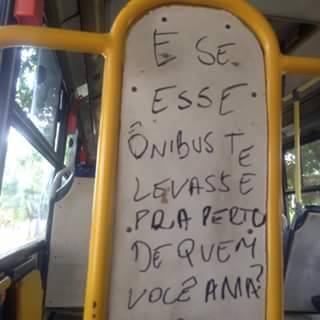 E SE
ESSE
ÔNIBUS TE
LEVASSE
PRA PERTO
DE QUEM
VOCÊ AMA?